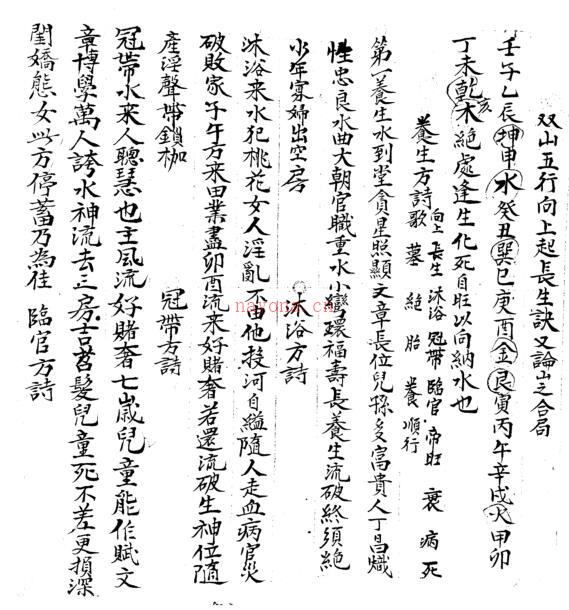 双山五行向上起長生訣又論山之合局
壬子乙辰坤申水癸丑巽巳庚酉金艮寅丙午辛戌火甲卯
丁未乾亥木絕處逢生化死自旺以向納水也
養生方詩歌 向上長生 沐浴 冠帶 臨官 帝旺 衰 病 死
墓 絕 胎 養 順行
第一養生水到堂貪星照顯文章長位兒孫多富貴人丁昌熾
性忠良水曲大朝官職重水小灣環福壽長養生流破終須絕
少年寡婦出空房 沐浴方詩
沐浴來水犯桃花女人淫亂不由他投河自縊隨人走血病官災
破敗家子午方來田業盡卯酉流來好賭奢若還流破生神位隨
產淫聲帶鎖枷 冠帶方詩
冠帶水來人聰慧也主風流好賭奢七歲兒童能作賦文
章博學萬人誇水神流去三房吉苕髮兒童死不差更損深
閨嬌態女此方停蓄乃為佳 臨官方詩
nayona.cn